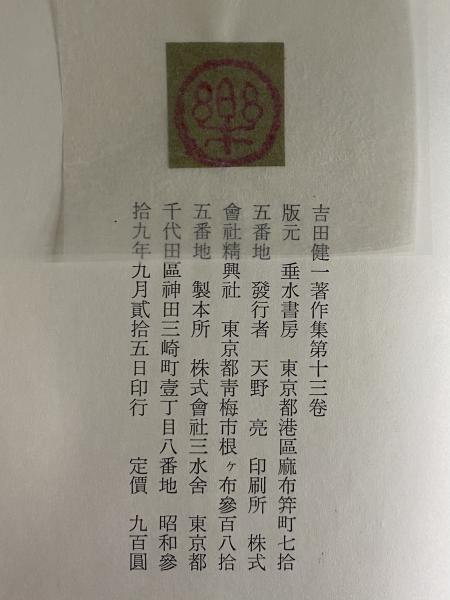 樂
吉田健一著作集第十三卷
版元 垂水書房 東京都港區麻布笄町七拾
五番地 發行者 天野 亮 印刷所 株式
會社精興社 東京都靑梅市根ヶ布參百八拾
五番地 製本所 株式會社三水舍 東京都
千代田區神田三崎町壹丁目八番地 昭和參
拾九年九月貳拾五日印行 定價 九百圓